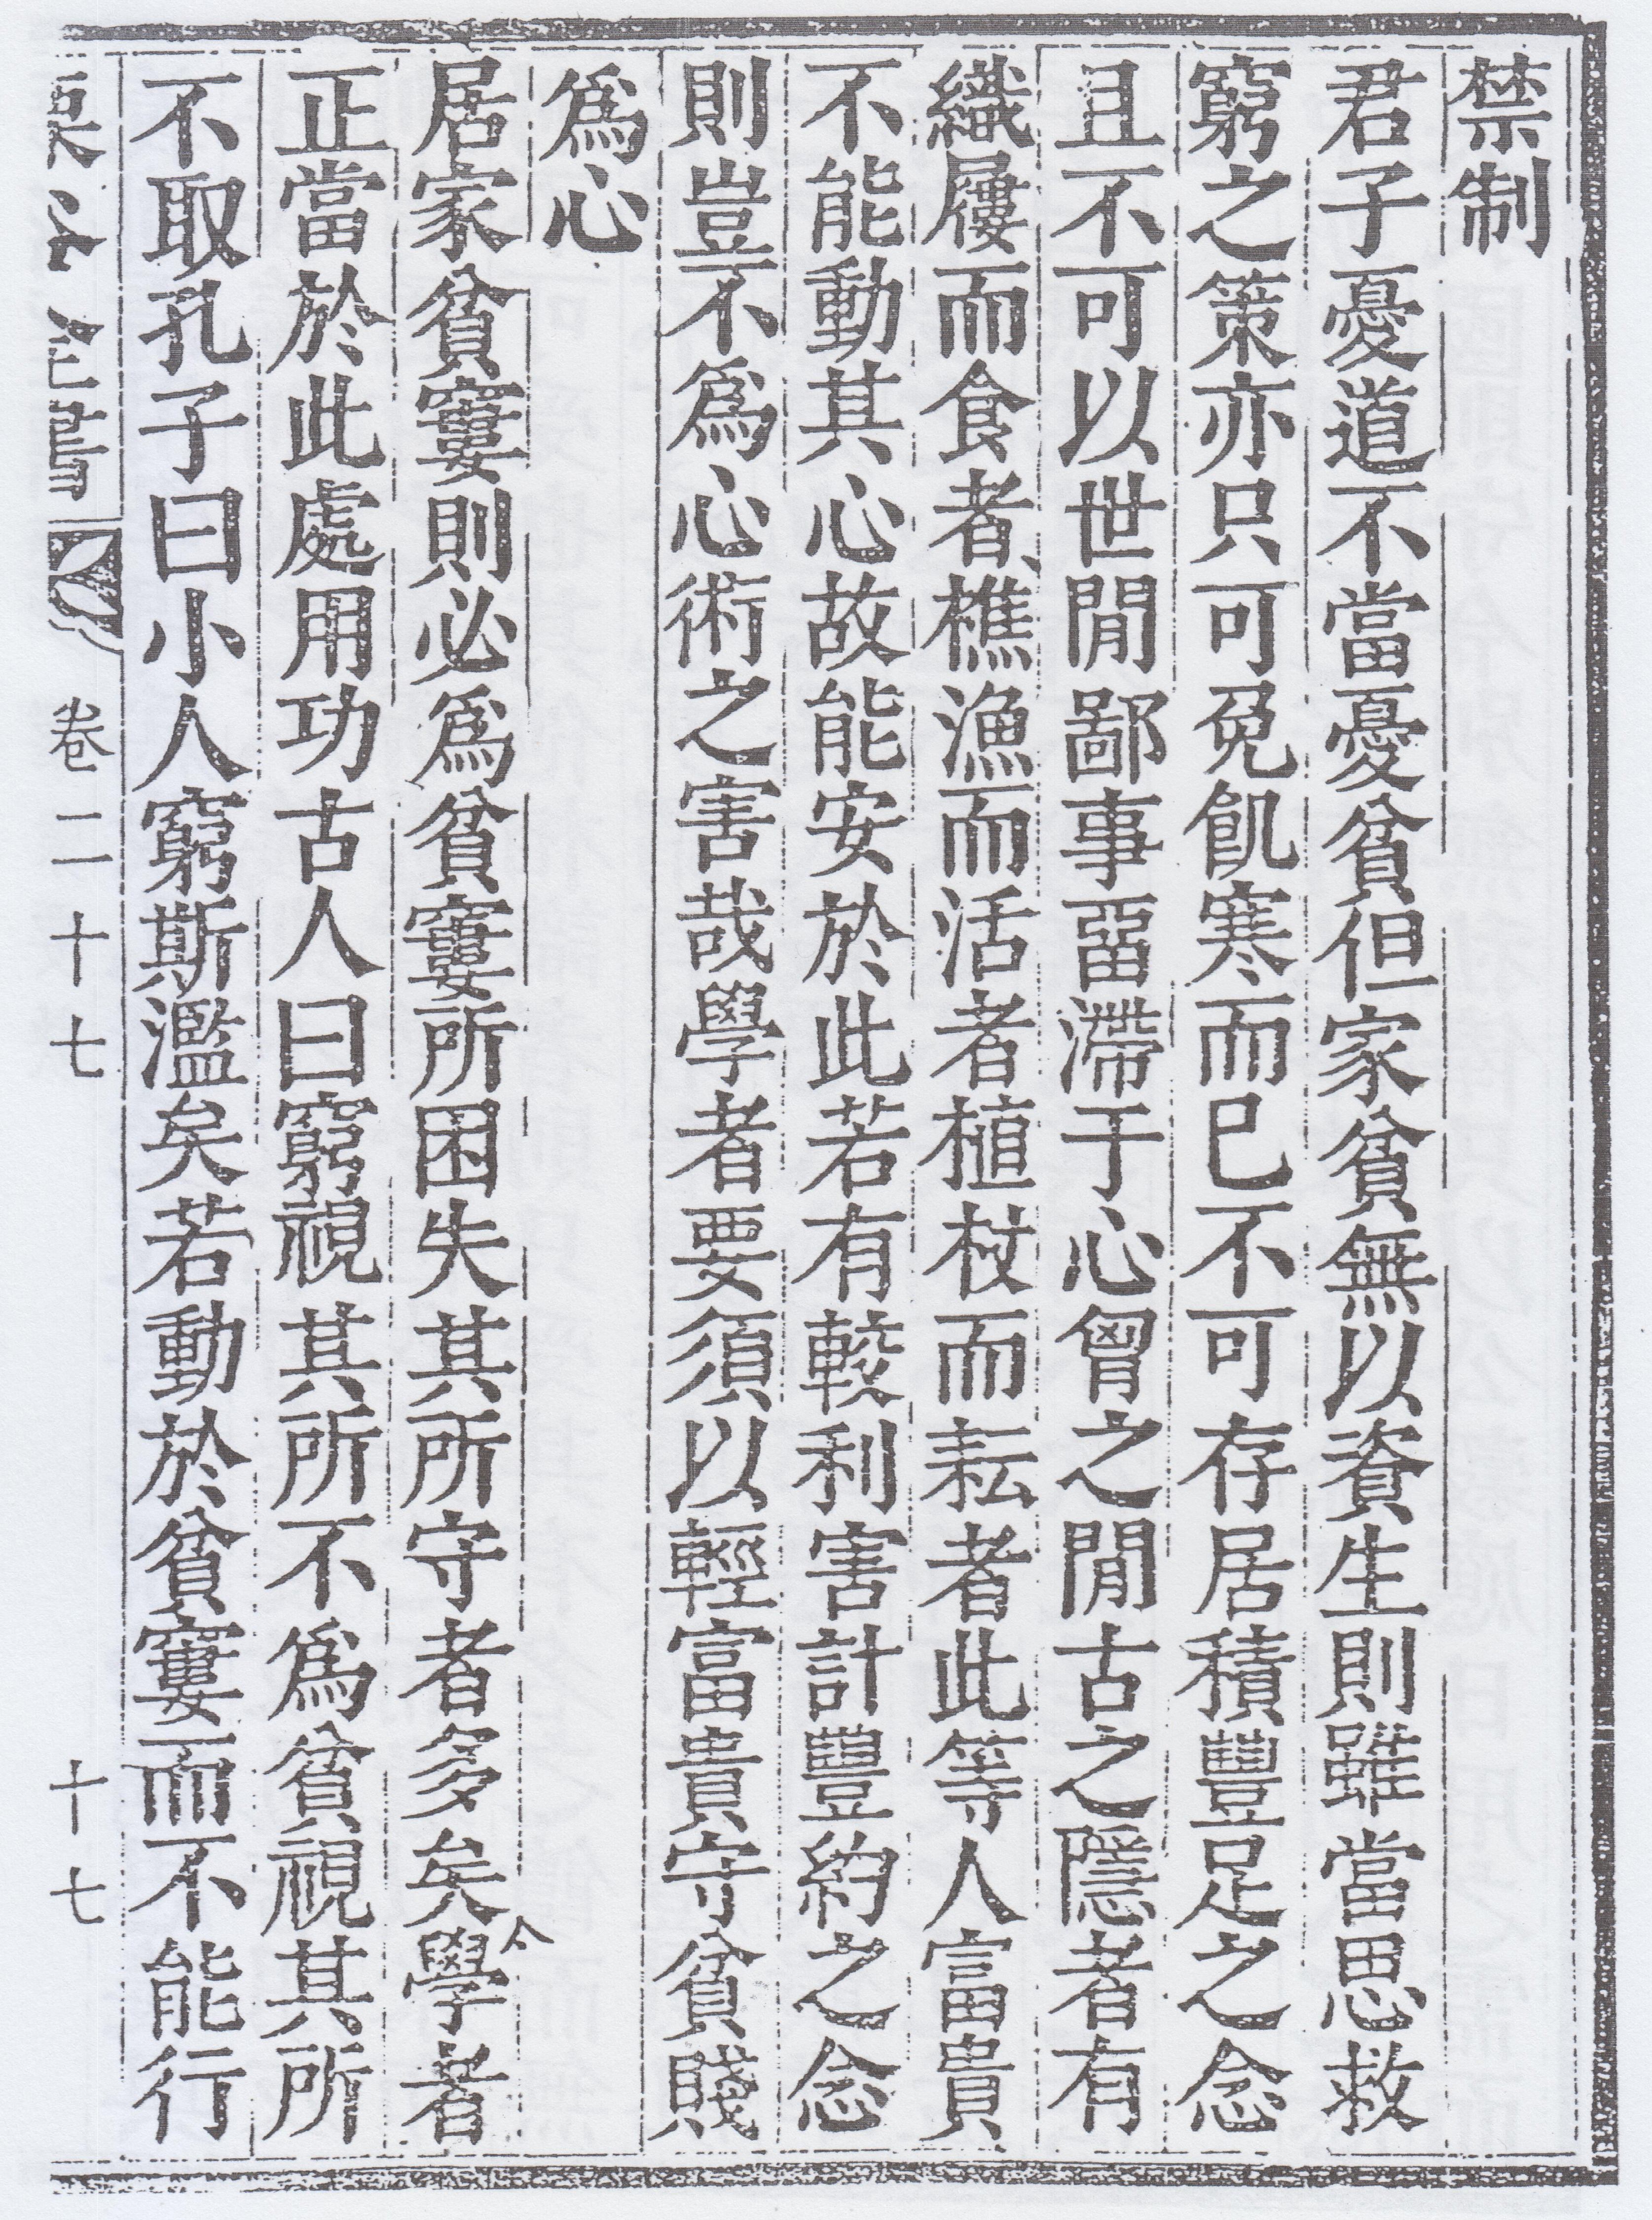 禁制
君子憂道不當憂貧但家貧無以資生則雖當思救
窮之策亦只可免飢寒而已不可存居積豐足之念
且不可以世閒鄙事畱滯于心胷之閒古之隱者有
織屨而食者樵漁而活者植杖而耘者此等人富貴
不能動其心故能安於此若有較利害計豐約之念
則豈不爲心術之害哉學者要須以輕富貴守貧賤
爲心
居家貧窶則必爲貧窶所困失其所守者多矣學者
正當於此處用功古人曰窮視其所不爲貧視其所
不取孔子曰小人窮斯濫矣若動於貧窶而不能行
卷二十七
十七